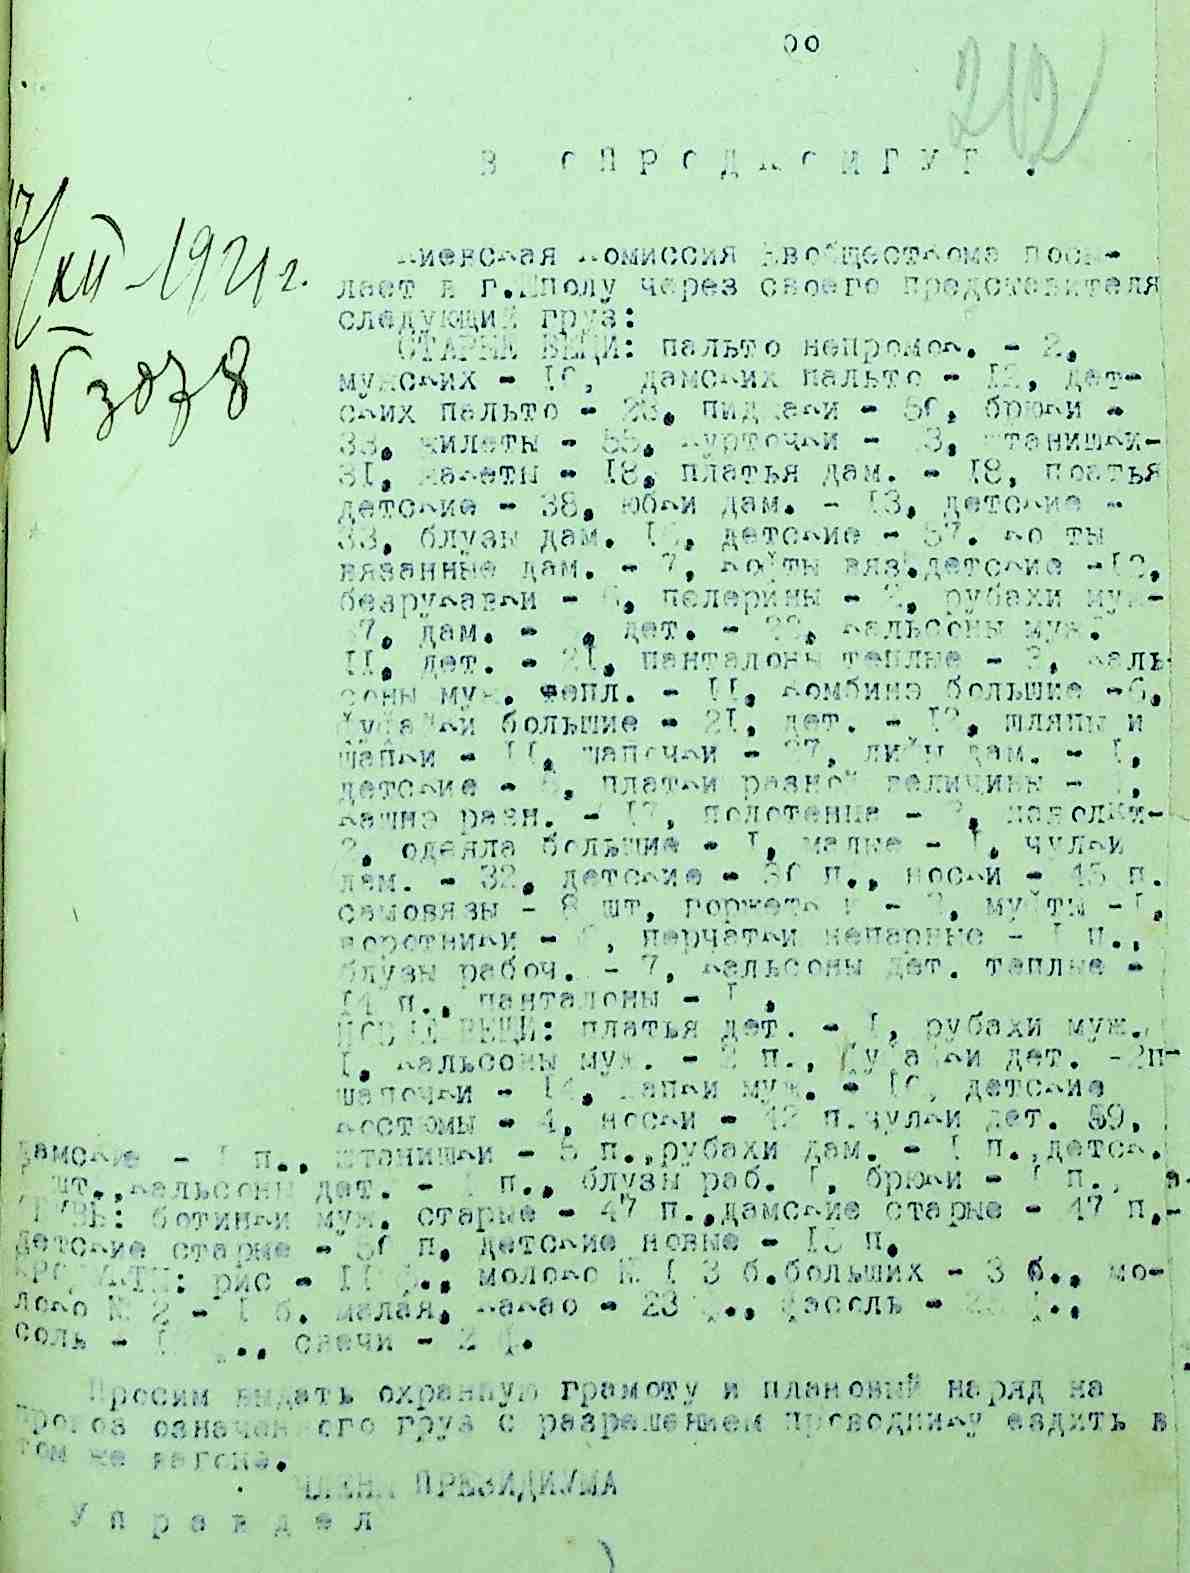 212
В ОПРОДКОМГУБ.
7/XII - 1921 г.
N 3078
Киевская Комиссия Евобщесткома посы-
лает в г.Шполу через своего представителя
следующий груз:
СТАРЫЕ ВЕЩИ: пальто непромок. - 2,
мужских - 10, дамских пальто - 12, дет-
ских пальто - пиджаки - брюки -
33, жилеты - 55, курточки - штанишки-
31, жакеты - 18, платья дам. - 18, поатья
детские - 38, юбки дам. - 13, детские -
33, блузы дам. детские - 57. ко ты
вязанные дам. - 7, кофты вяз.детские -
безрукавки - 6, пелерины - 2, рубахи муж-
дам. - дет. - кальсоны муж.
11, дет. - 21, панталоны теплые - 3, каль-
соны муж. тепл. - 11, комбинэ большие -6,
фуфайки большие - 21, дет. - шляпы и
шапки - 11, шапочки - лифы дам. - 1,
детские - платки разной величины -
кашнэ разн. - полотенца - наволки-
2, одеяла большие - 1, малые - 1, чулки
дам. - 32, детские - п., носки - 45 п.
самовязы - 8 шт, горжетк и - муфты -1,
воротники - перчатки непарные - 1 п.,
блузы рабоч. - 7, кальсоны дет. теплые -
14 п., панталоны - 1,
НОВЫЕ ВЕЩИ: платья дет. - 1, рубахи муж.
1, кальсоны муж. - 2 п., фуфайки дет. -2п-
шапочки - 14, шапки муж. - детские
костюмы - 4, носки - 42 п.чулки дет. 59,
дамские - 1 п., штанишки - 5 п.,рубахи дам. - 1 п.,детск.
шт.,кальсоны дет. - 1 п., блузы раб. 1, брюки - 1 п.,
ОБУВЬ: ботинки муж. старые - 47 п.,дамские старые - 47 п,-
детские старые - п, детские новые - п,
ПРОДУКТЫ: рис - молоко № 1 3 б.больших - 3 б., мо-
локо № 2 - 1 б. малая, какао - 23 ф., фасоль -
соль - свечи - 2 ф.
Просим выдать охранную грамоту и плановый наряд на
провоз означенного груз с разрешением проводнику ездить в
том же вагоне.
ЧЛЕНЫ ПРЕЗИДИУМА
Управдел